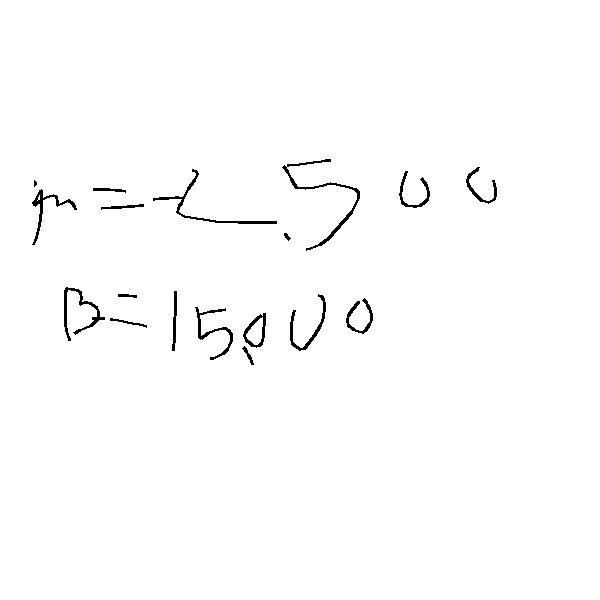 m=-2.500
B=15,000